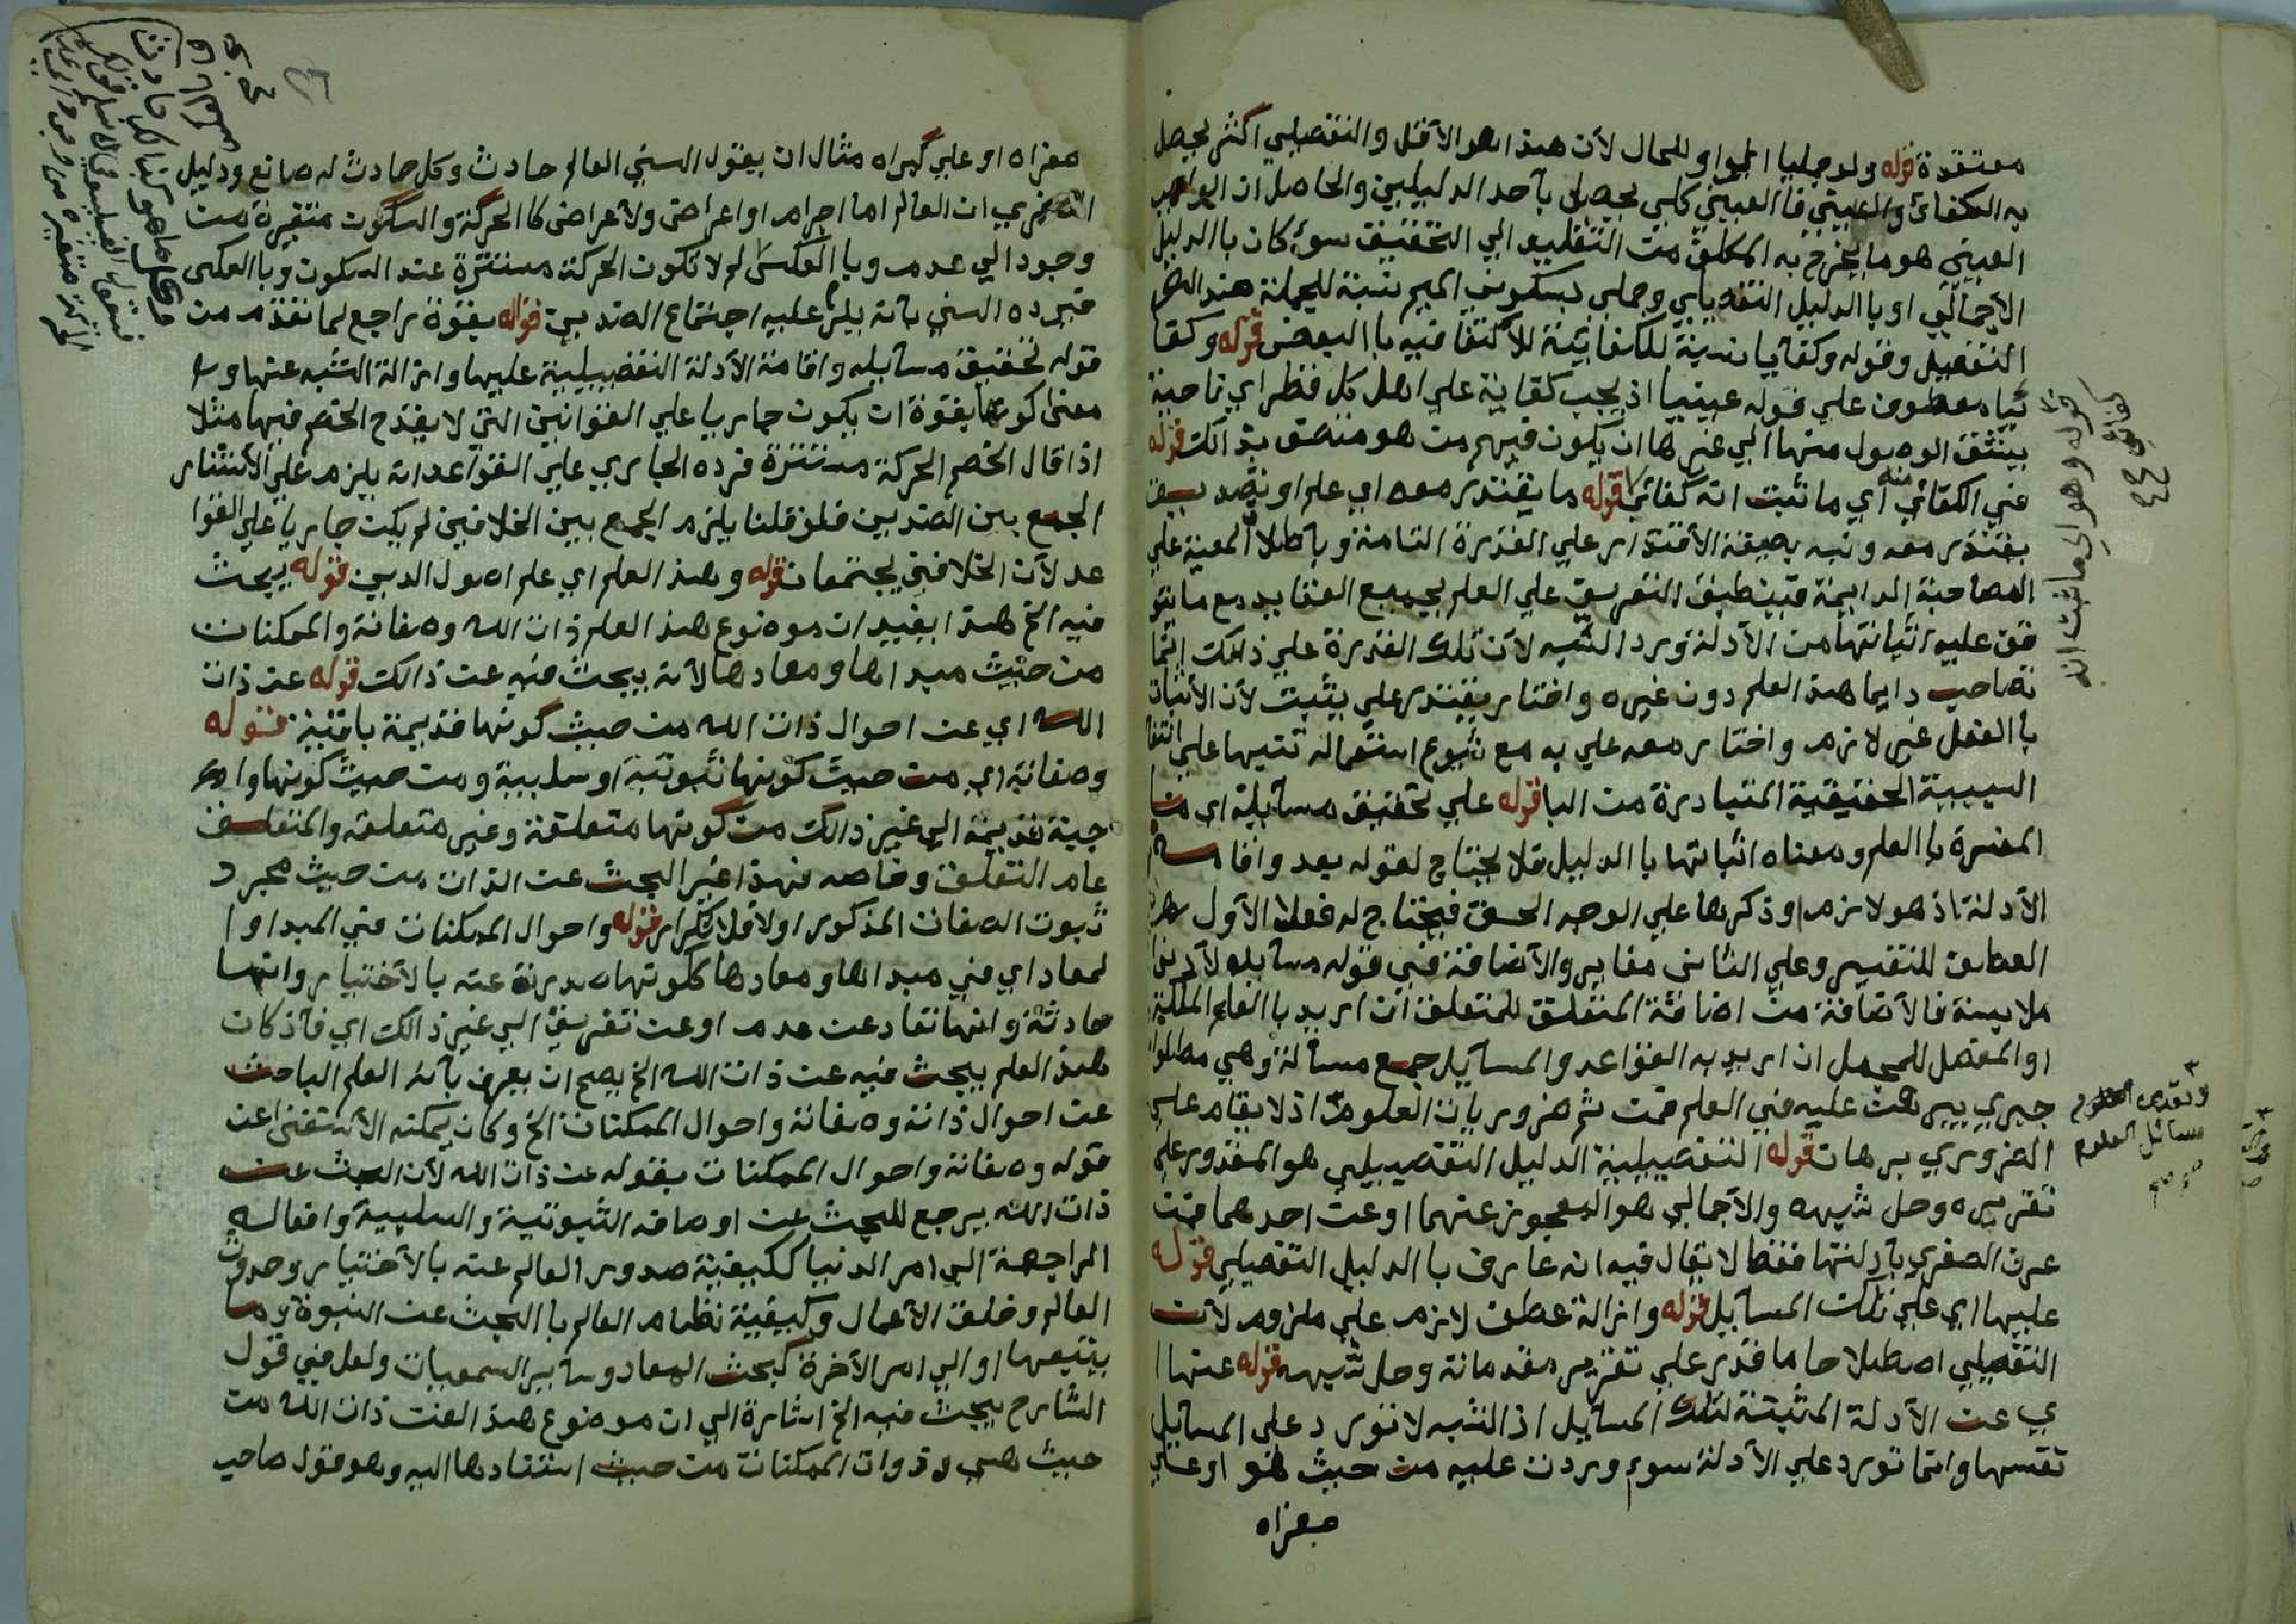 معتقدة قوله ولو جمليا الواو للحال لأن هذا هو الأقل والتفصيلي اكثر يحصل
به الكفائي والعيني فالعيني كلي يحصل بأحد الدليلين والحاصل ان الواجب
العيني هو ما يخرج به المكلف من التقليد الي التحقيق سوء كان باالدليل
الاجمالي او باالدليل التفصيلي وجملي بسكون الميم نسبة للجملة ضد
التفصيل وقوله وكفايا نسبة للكفاية للأكتفا فيه باالبعض قوله وكفا
ئيا معطوف علي قوله عينيا اذ يجب كفاية علي اهل كل قطر اي ناحية
يشق الوصول منها الي غيرها ان يكون فيهم من هو متصف بذالك قوله
في الكفائي اي ما ثبت انه كفائي قوله ما يقتدر معه اي علم او تصديق
يقتدر معه ونبه بصيغة الأقتدار علي القدرة التامة وبأطلاق المعية علي
المصاحبة الدايمة فينطبق التعريف علي العلم بجميع العقايد مع ما يتو
قف عليه اثباتها من الأدلة ورد الشبه لأن تلك القدرة علي ذالك انما
تصاحب دايما هذ العلم دون غيره واختار يقتدر علي يثبت لأن الأثبات
باالفعل غير لازم واختار معه علي به مع شيوع استعماله تنبيها علي انتفا
السببية الحقيقية المتبادرة من البا قوله علي تحقيق مسآيله اي
المفسرة باالعلم ومعناه اثباتها باالدليل فلا يحتاج لقوله بعد واقامة
الأدلة اذ هو لازم او ذكرها علي الوجه الحق فيحتاج له فعلي الأول
العطف للتفسير وعلي الثاني مغاير والأضافة في قوله مسآيله لأدني
ملابسة فالأضافة من اضافة المتعلق للمتعلق ان اريد باالعلم الملكة
او المفصل للمجمل ان اريد به القواعد والمسآيل جمع مسألة وهي مطلوب
خبري يبرهن عليه في العلم فمن ثم ضروريات العلوم اذ لا يقام علي
الضروري برهان قوله التفصيلية الدليل التفصيلي هو المقدور علي
تقريره وحل شبهه والأجمالي هو المعجوز عنهما او عن احدهما فمن
عرف الصغري بأدلتها فقط لا يقال فيه انه عارف باالدليل التفصيلي قوله
عليها اي علي تلك المسآيل قوله وازالة عطف لازم علي ملزوم لأن
التفصيلي اصطلاحا ما قدر علي تقرير مقدماته وحل شبهه قوله عنها ا
ي عن الأدلة المثبتة لتلك المسآيل اذ الشبه لا تورد علي المسآيل
نفسها وانما تورد علي الأدلة سوء وردت عليه من حيث هو او علي
صغراه
قوله وهو اي ما ثبت انه
كفائي
مسائل العلوم
صغراه او علي كبراه مثال ان يقول السني العالم حادث وكل حادث له صانع ودليل
الصغري ان العالم اما اجرام او اعراض والأعراض كالحركة والسكون متغيرة من
وجود الي عدم وباالعكس لم لا تكون الحركة مستترة عند السكون وباالعكس
فيرده السني بأنه يلزم عليه اجتماع الضدين قوله بقوة راجع لما تقدم من
قوله تحقيق مسآيله واقامة الأدلة التفصيلية عليها وازالة الشبه عنها و
معني كونها بقوة ان يكون جاريا علي القوانين التي لا يقدح الخصم فيها مثلا
اذا قال الخصم الحركة مستترة فرده الجاري علي القواعد انه يلزم علي الأستتار
الجمع بين الضدين فلو قلنا يلزم الجمع بين الخلافين لم يكن جاريا علي القوا
عد لأن الخلافين يجتمعان قوله وهذ العلم اي علم اصول الدين قوله يبحث
فيه الخ هذا يفيد ان موضوع هذ العلم ذات الله وصفاته والممكنات
من حيث مبداها ومعادها لأنه يبحث فيه عن ذالك قوله عن ذات
الله اي عن احوال ذات الله من حيث كونها قديمة باقية قوله
وصفاته اي من حيث كونها ثبوتية او سلبية ومن حيث كونها وا
جبة قديمة الي غير ذالك من كونها متعلقة وغير متعلقة والمتعلق
عام التعلق وخاصه فهذا غير البحث عن الذات من حيث مجرد
ثبوت الصفات المذكور اولا فلا تكرار قوله واحوال الممكنات في المبدا وا
لمعاد اي في مبداها ومعادها ككونها صدرت عنه بالأختيار وانها
حادثة وانها تعاد عن عدم او عن تفريق الي غير ذالك اي فأذ كان
هذ العلم يبحث فيه عن ذات الله الخ يصح ان يعرف بأنه العلم الباحث
عن احوال ذاته وصفاته واحوال الممكنات الخ وكان يمكنه الأستغنا عن
قوله وصفاته واحوال الممكنات بقوله عن ذات الله لأن البحث عن
ذات الله يرجع للبحث عن اوصافه الثبوتية والسلبية وافعاله
الراجعة الي امر الدنيا ككيفية صدور العالم عنه بالأختيار وحدوث
العالم وخلق الأعمال وكيفية نظام العالم باالبحث عن النبوة وما
يتبعها او الي امر الأخرة كبحث المعاد وسآير السمعيات ولعل في قول
الشارح يبحث فيه الخ اشارة الي ان موضوع هذ الفن ذات الله من
حيث هي وذوات الممكنات من حيث استنادها اليه وهو قول صاحب